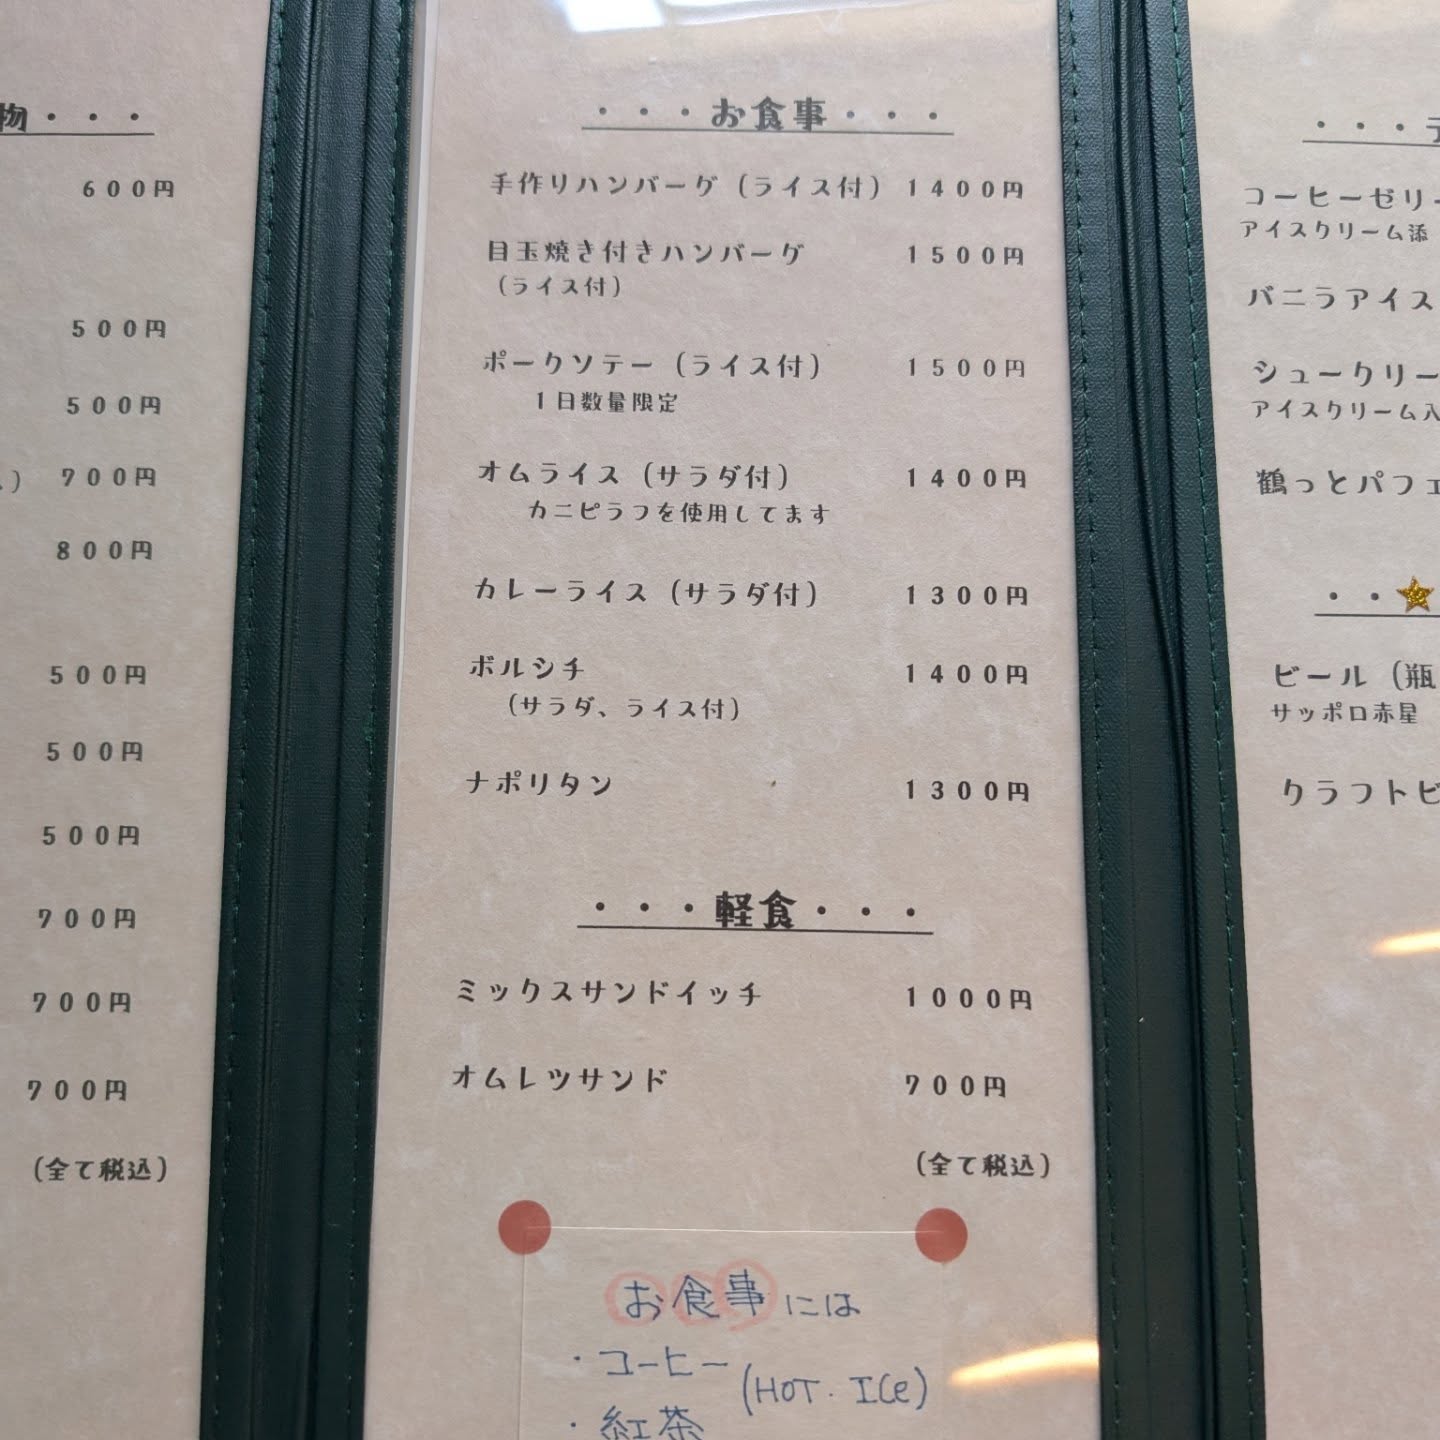 物・・・
600円
500円
500円
700円
800円
500円
500円
500円
700円
700円
700円
(全て税込)
・・・お食事・・・
手作りハンバーグ（ライス付） 1400円
目玉焼き付きハンバーグ 1500円
（ライス付）
ポークソテー（ライス付） 1500円
1日数量限定
オムライス（サラダ付） 1400円
カニピラフを使用してます
カレーライス（サラダ付） 1300円
ボルシチ 1400円
（サラダ、ライス付）
ナポリタン 1300円
・・・軽食・・・
ミックスサンドイッチ 1000円
オムレツサンド 700円
(全て税込)
お食事には
・コーヒー (HOT・ICe)
・紅茶
・・・デ
コーヒーゼリー
アイスクリーム添
バニラアイス
シュークリー
アイスクリーム入
鶴っとパフェ
・・
ビール（瓶
サッポロ赤星
クラフトビ